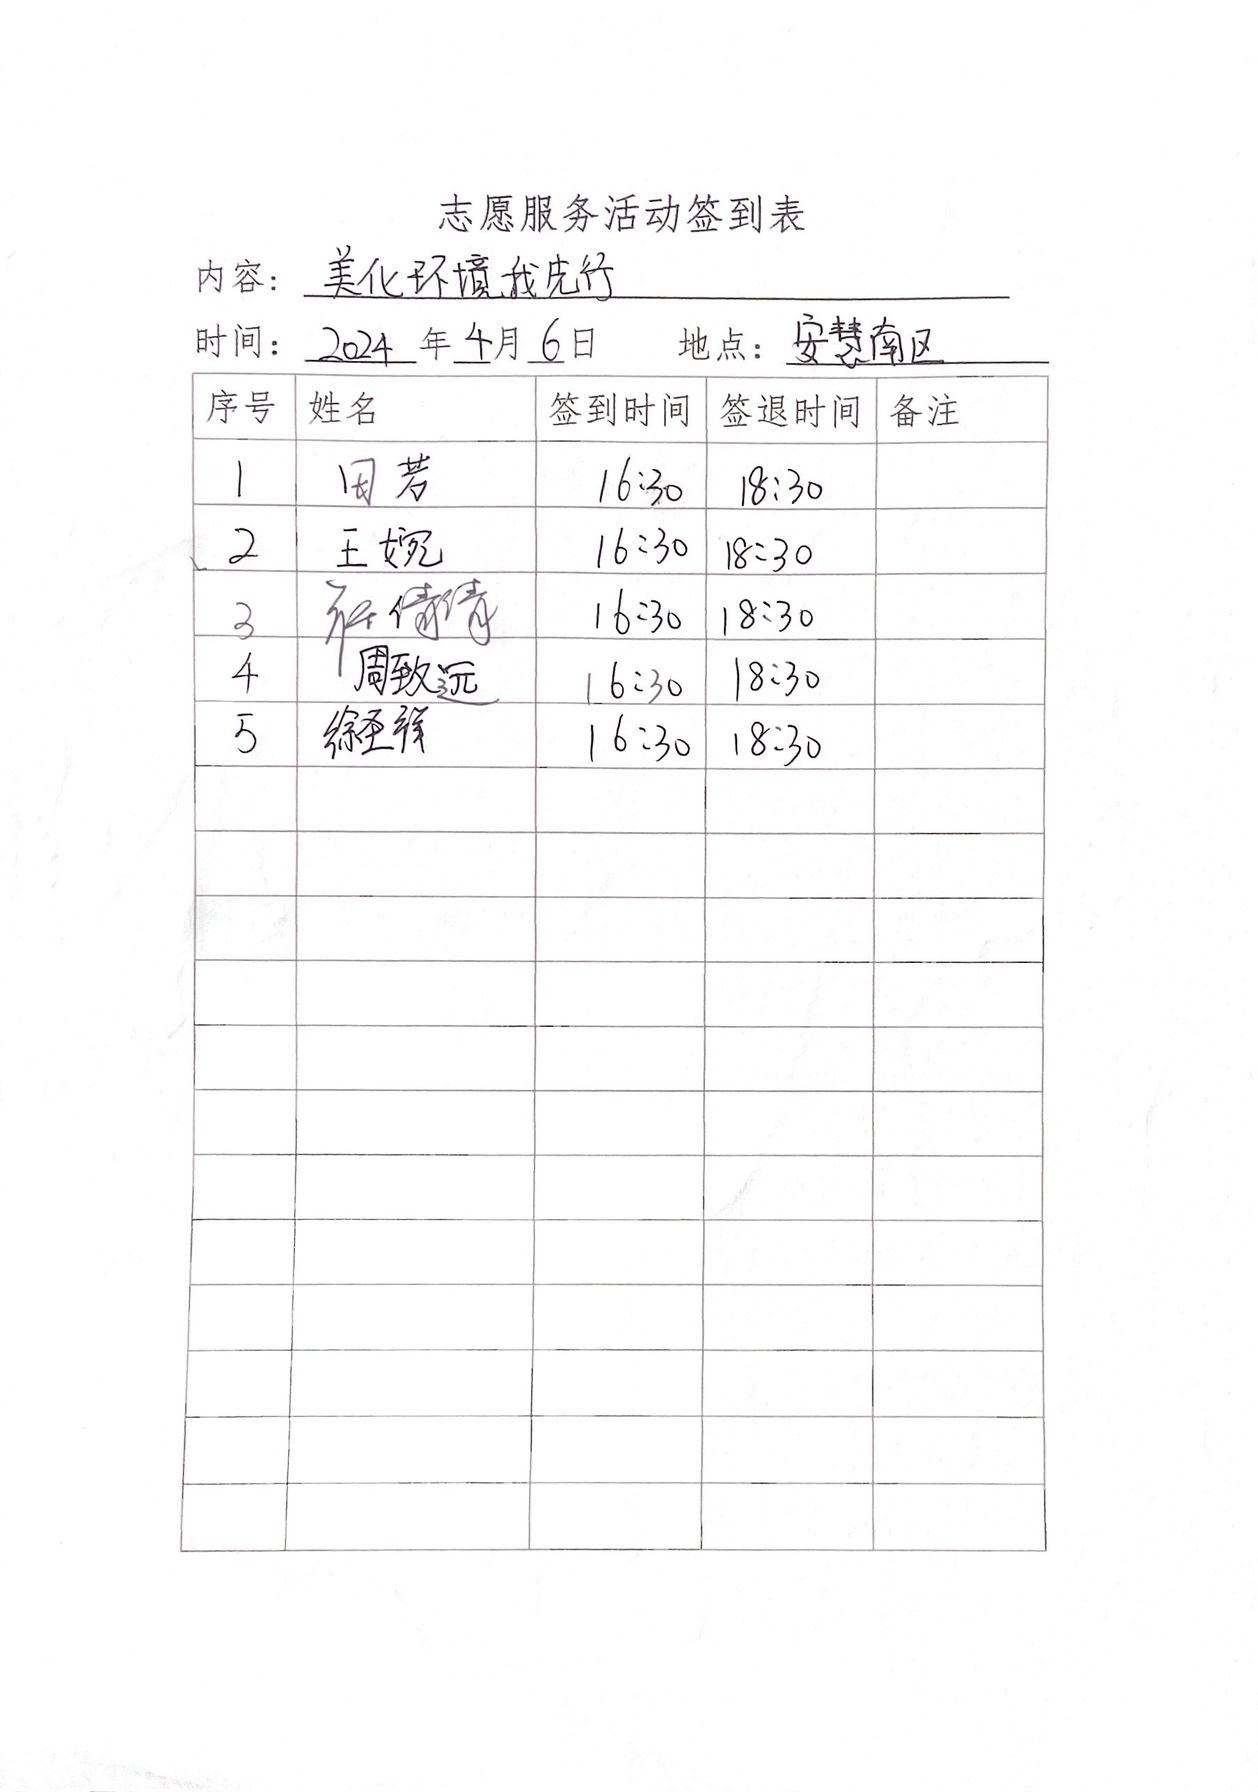 志愿服务活动签到表
内容: 美化环境我先行
时间: 2024 年 4 月 6 日 地点: 安慧南区
序号 姓名 签到时间 签退时间 备注
1 田若 16:30 18:30
2 王婉 16:30 18:30
3 倩倩 16:30 18:30
4 周致远 16:30 18:30
5 徐圣祥 16:30 18:30